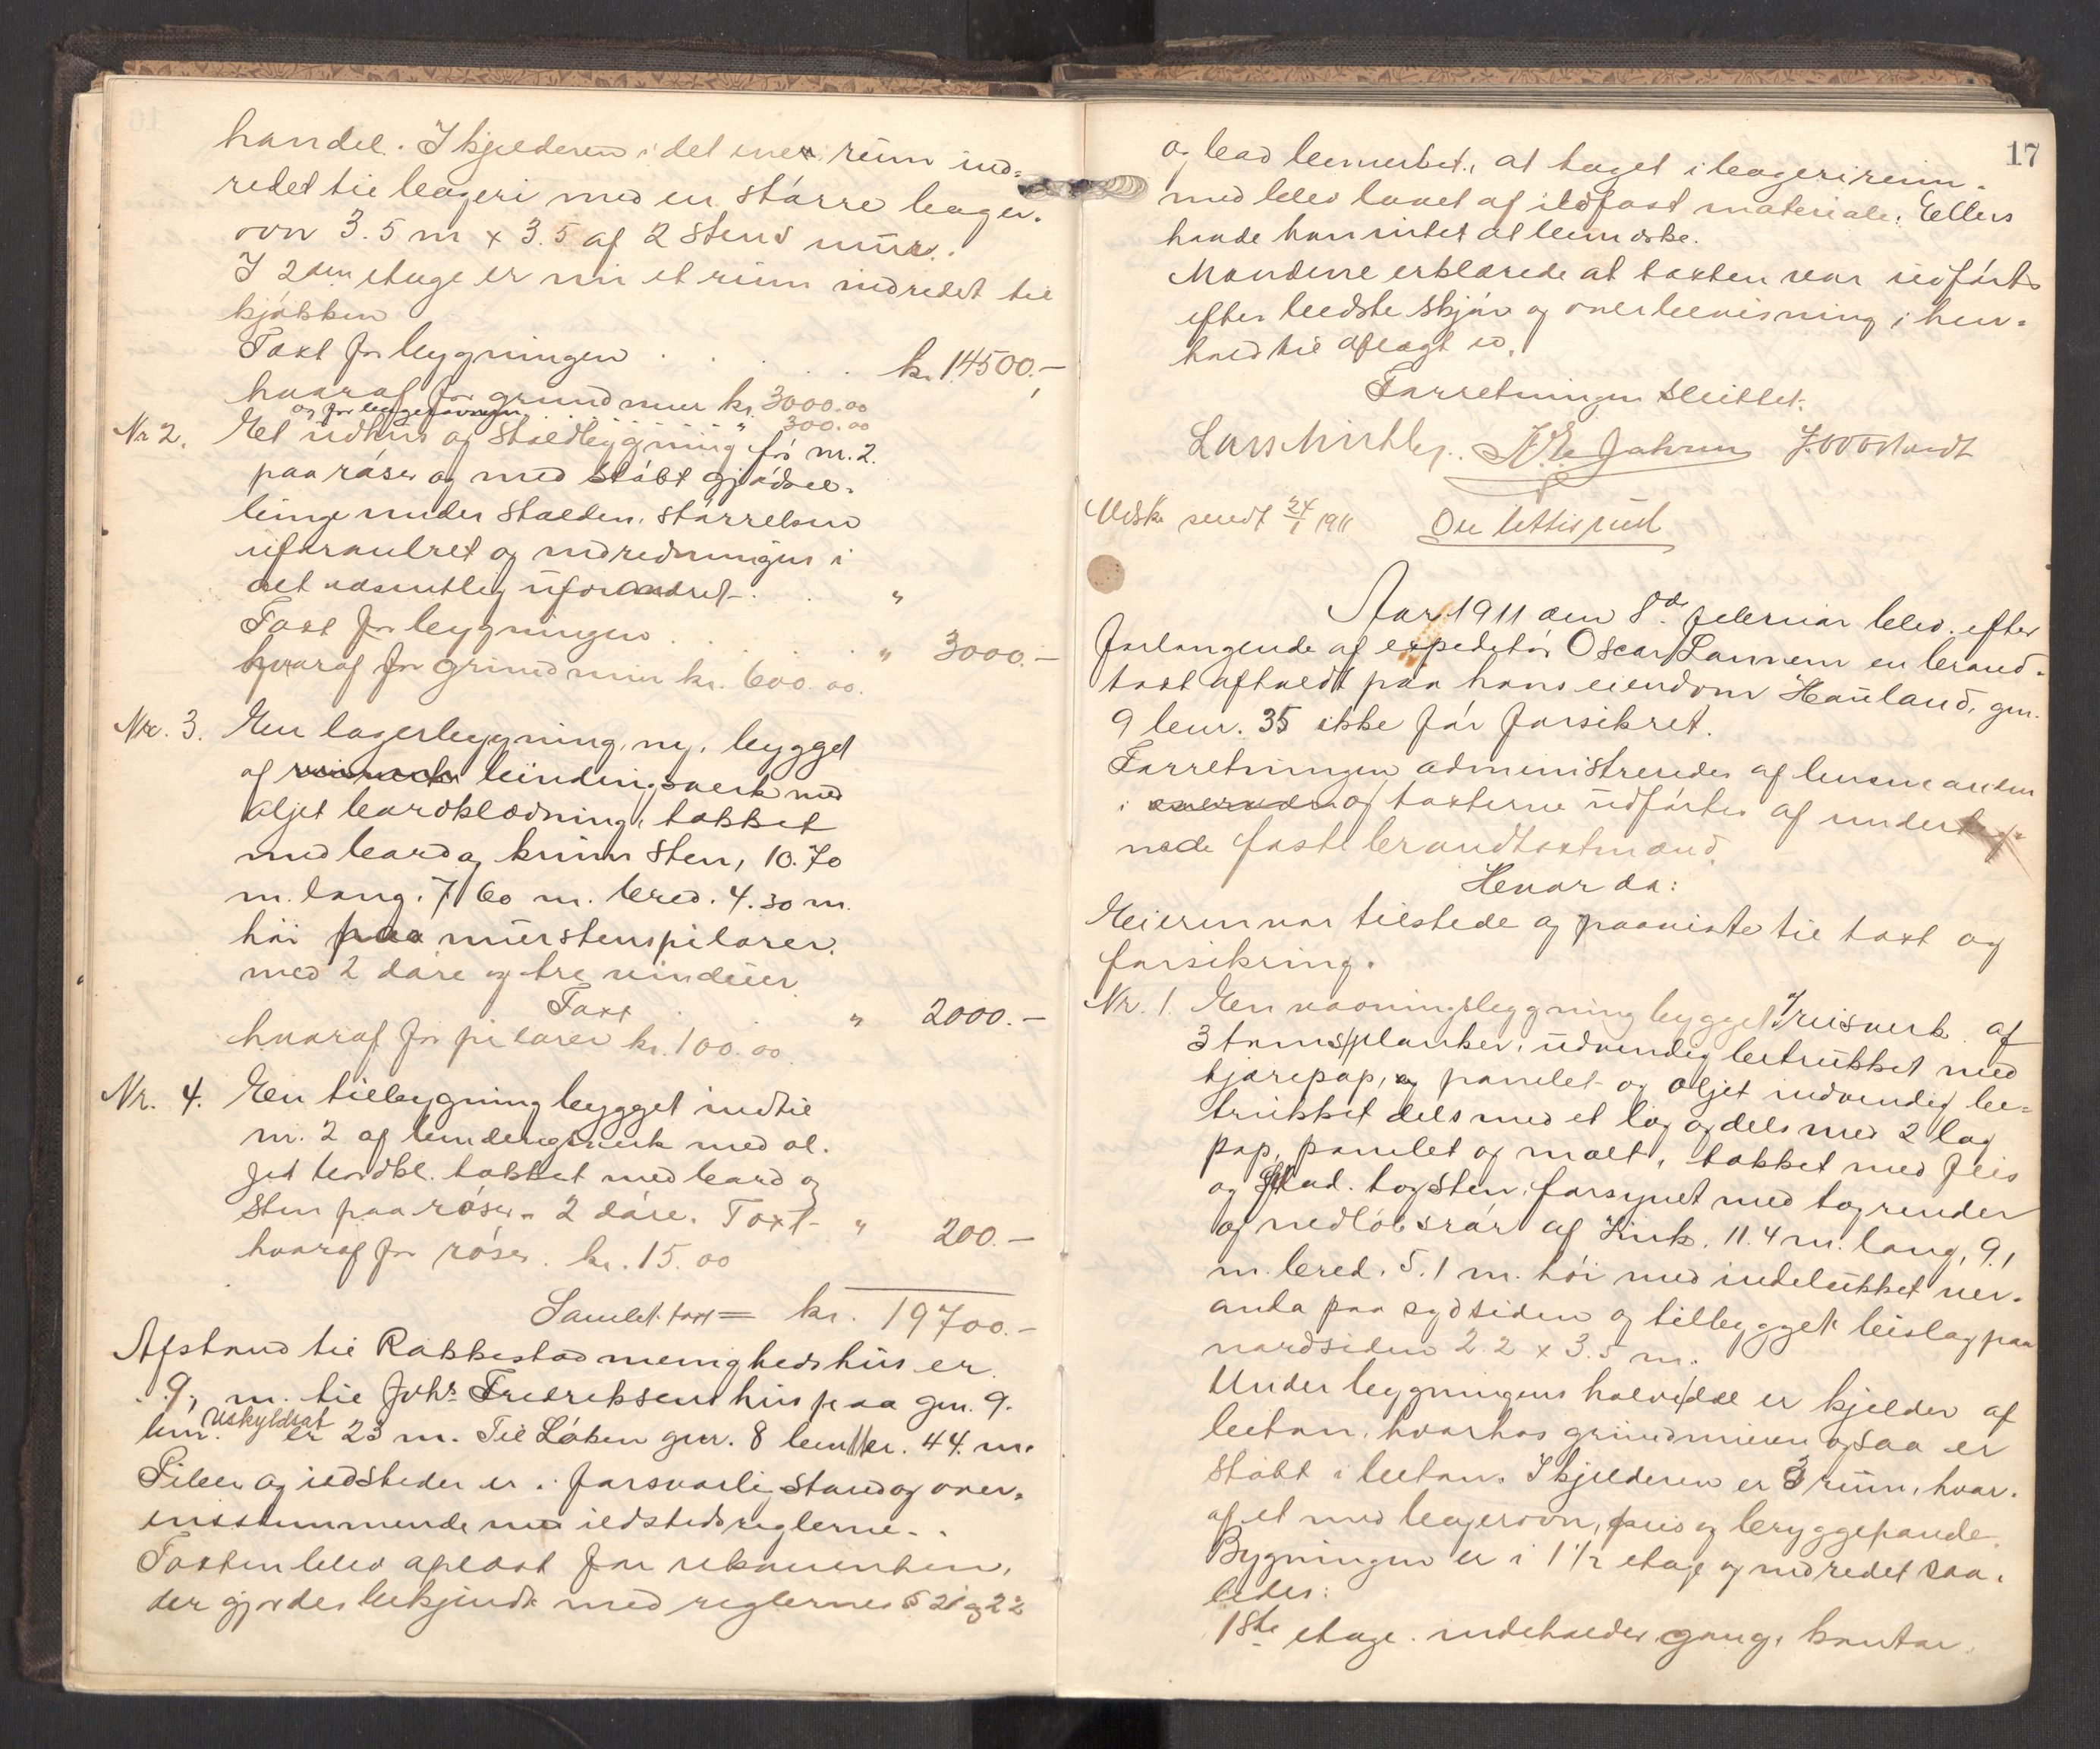 handel. I kjelderen i det ene rum ind-
redet til bageri med en større bager-
ovn 3.5 m x 3.5 af 2 stens mur.
I 2den etage er nu et rum indredet til
kjøkken
Taxt for bygningen . . . kr. 14500.-
hvoraf for grundmur kr. 3000.00
og for bagerovnen " 300.00
Nr 2. Et udhus og staldbygning før nr. 2.
paa røser og med støbt gjødsel-
binge under stalden. størrelsen
uforandret og indredningen i
det væsentlig uforandret. . "
Taxt for bygningen . . . " 3000.-
hvoraf for grundmur kr. 600.00.
Nr. 3. En lagerbygning, ny, bygget
af bindingsverk med
oljet bordklædning, tækket
med bord og krum sten, 10.70
m. lang. 7.60 m. bred. 4.30 m.
høi paa murstenspilarer.
med 2 døre og tre vinduer
Taxt . . " 2000.-
hvoraf for pilarer kr. 100.00
Nr. 4. En tilbygning bygget indtil
nr. 2 af bindingsverk med ol-
jet bordkl. tækket med bord og
sten paa røser. 2 døre. Taxt - " 200.-
hvoraf for røser. kr. 15.00
Samlet taxt = kr. 19700.-
Afstand til Rakkestad menighedshus er
9, m. til Johs Fredriksens hus paa gnr. 9.
bnr. uskyldsat er 23 m. Til Løken gnr. 8 bnr 11 er. 44. m.
Piber og ildsteder er i forsvarlig stand og over-
ensstemmende med ildstedsreglerne.
Taxten blev oplæst for rekvirenten,
der gjordes bekjendt med reglernes § 21 og 22
17
og blev bemerket, at taget i bageriet
med blev lavet af ildfast materiale. Ellers
havde han intet at bemærke.
Mændene erklærede at taxten var udført
efter bedste skjøn og overbevisning i hen-
hold til aflagt ed.
Forretningen sluttet.
Lars Kirkby. J. O. Ostvedt
Utsk. sendt 24/1 1911 Ole Lettisrud
Aar 1911 den 8de februar blev efter
forlangende af expeditør Oscar Lannem en brand-
taxt afholdt paa hans eiendom Hauland, gnr.
9 bnr. 35 ikke før forsikret.
Forretningen administreredes af lensmanden
i og taxterne udførtes af underteg-
nede faste brandtaxtmænd.
Hvorda:
Eieren var tilstede og paaviste til taxt og
forsikring.
Nr. 1. En vaaningsbygning bygget af reisverk af
3 toms planker, udvendig betrukket med
tjærepap, og panelet og oljet indvendig be-
trukket dels med et lag og dels med 2 lag
pap, panelet og malt, tækket med fjeis
og flad. tagsten, forsynet med tagrender
og nedløbsrør af zink. 11.4 m. lang, 9.1
m. bred. 5.1 m. høi med indelukket ver-
anda paa sydsiden og tilbygget bislag paa
nordsiden 2.2 x 3.5 m.
Under bygningens halve del er kjelder af
beton, hvorhos grundmuren ogsaa er
støbt i beton. I kjelderen er 3 rum, hvor-
af et med bagerovn, peis og bryggepande.
Bygningen er i 1 1/2 etage og indredet saa-
ledes:
1ste etage indeholder gang, kontor